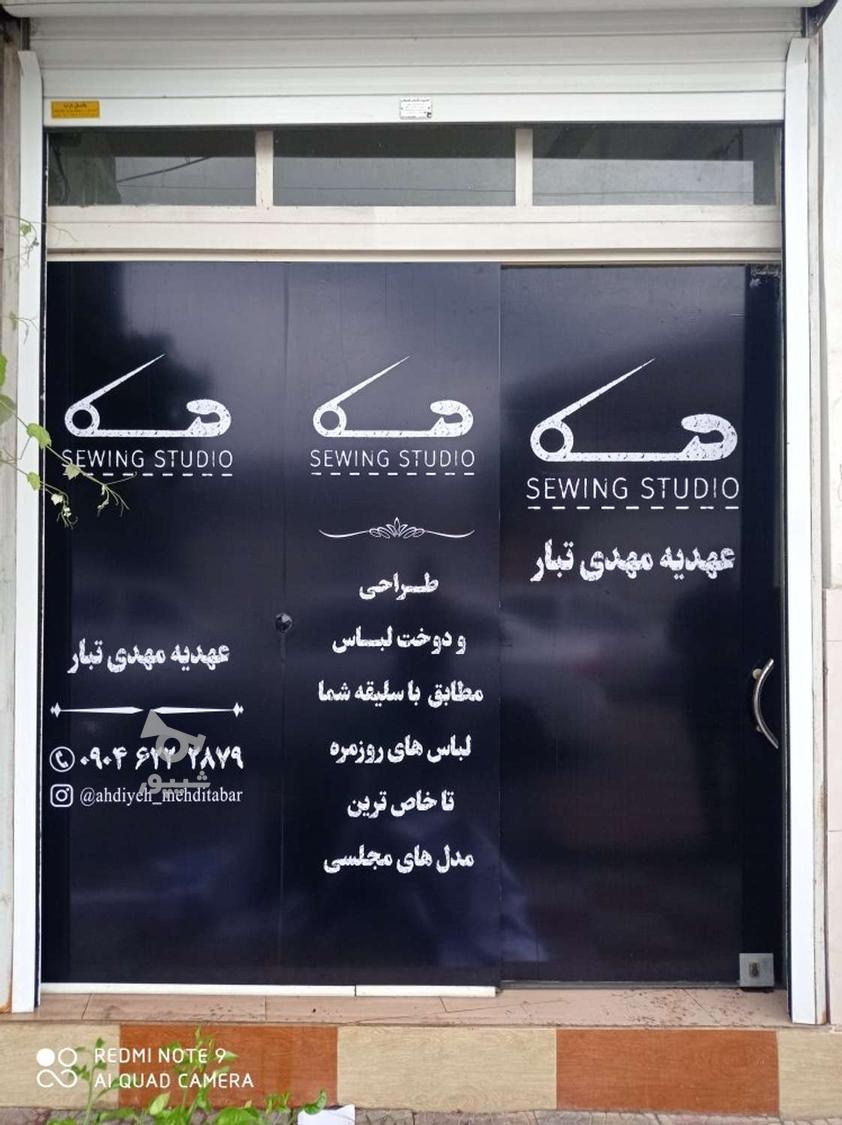 SEWING STUDIO
عهدیه مهدی تبار
SEWING STUDIO
طراحی
و دوخت لباس
مطابق با سلیقه شما
لباس های روزمره
تا خاص ترین
مدل های مجلسی
SEWING STUDIO
عهدیه مهدی تبار
۰۹۰۴ ۶۲۲ ۲۸۷۹
@ahdiyeh_mehditabar
شیپور
REDMI NOTE 9
AI QUAD CAMERA